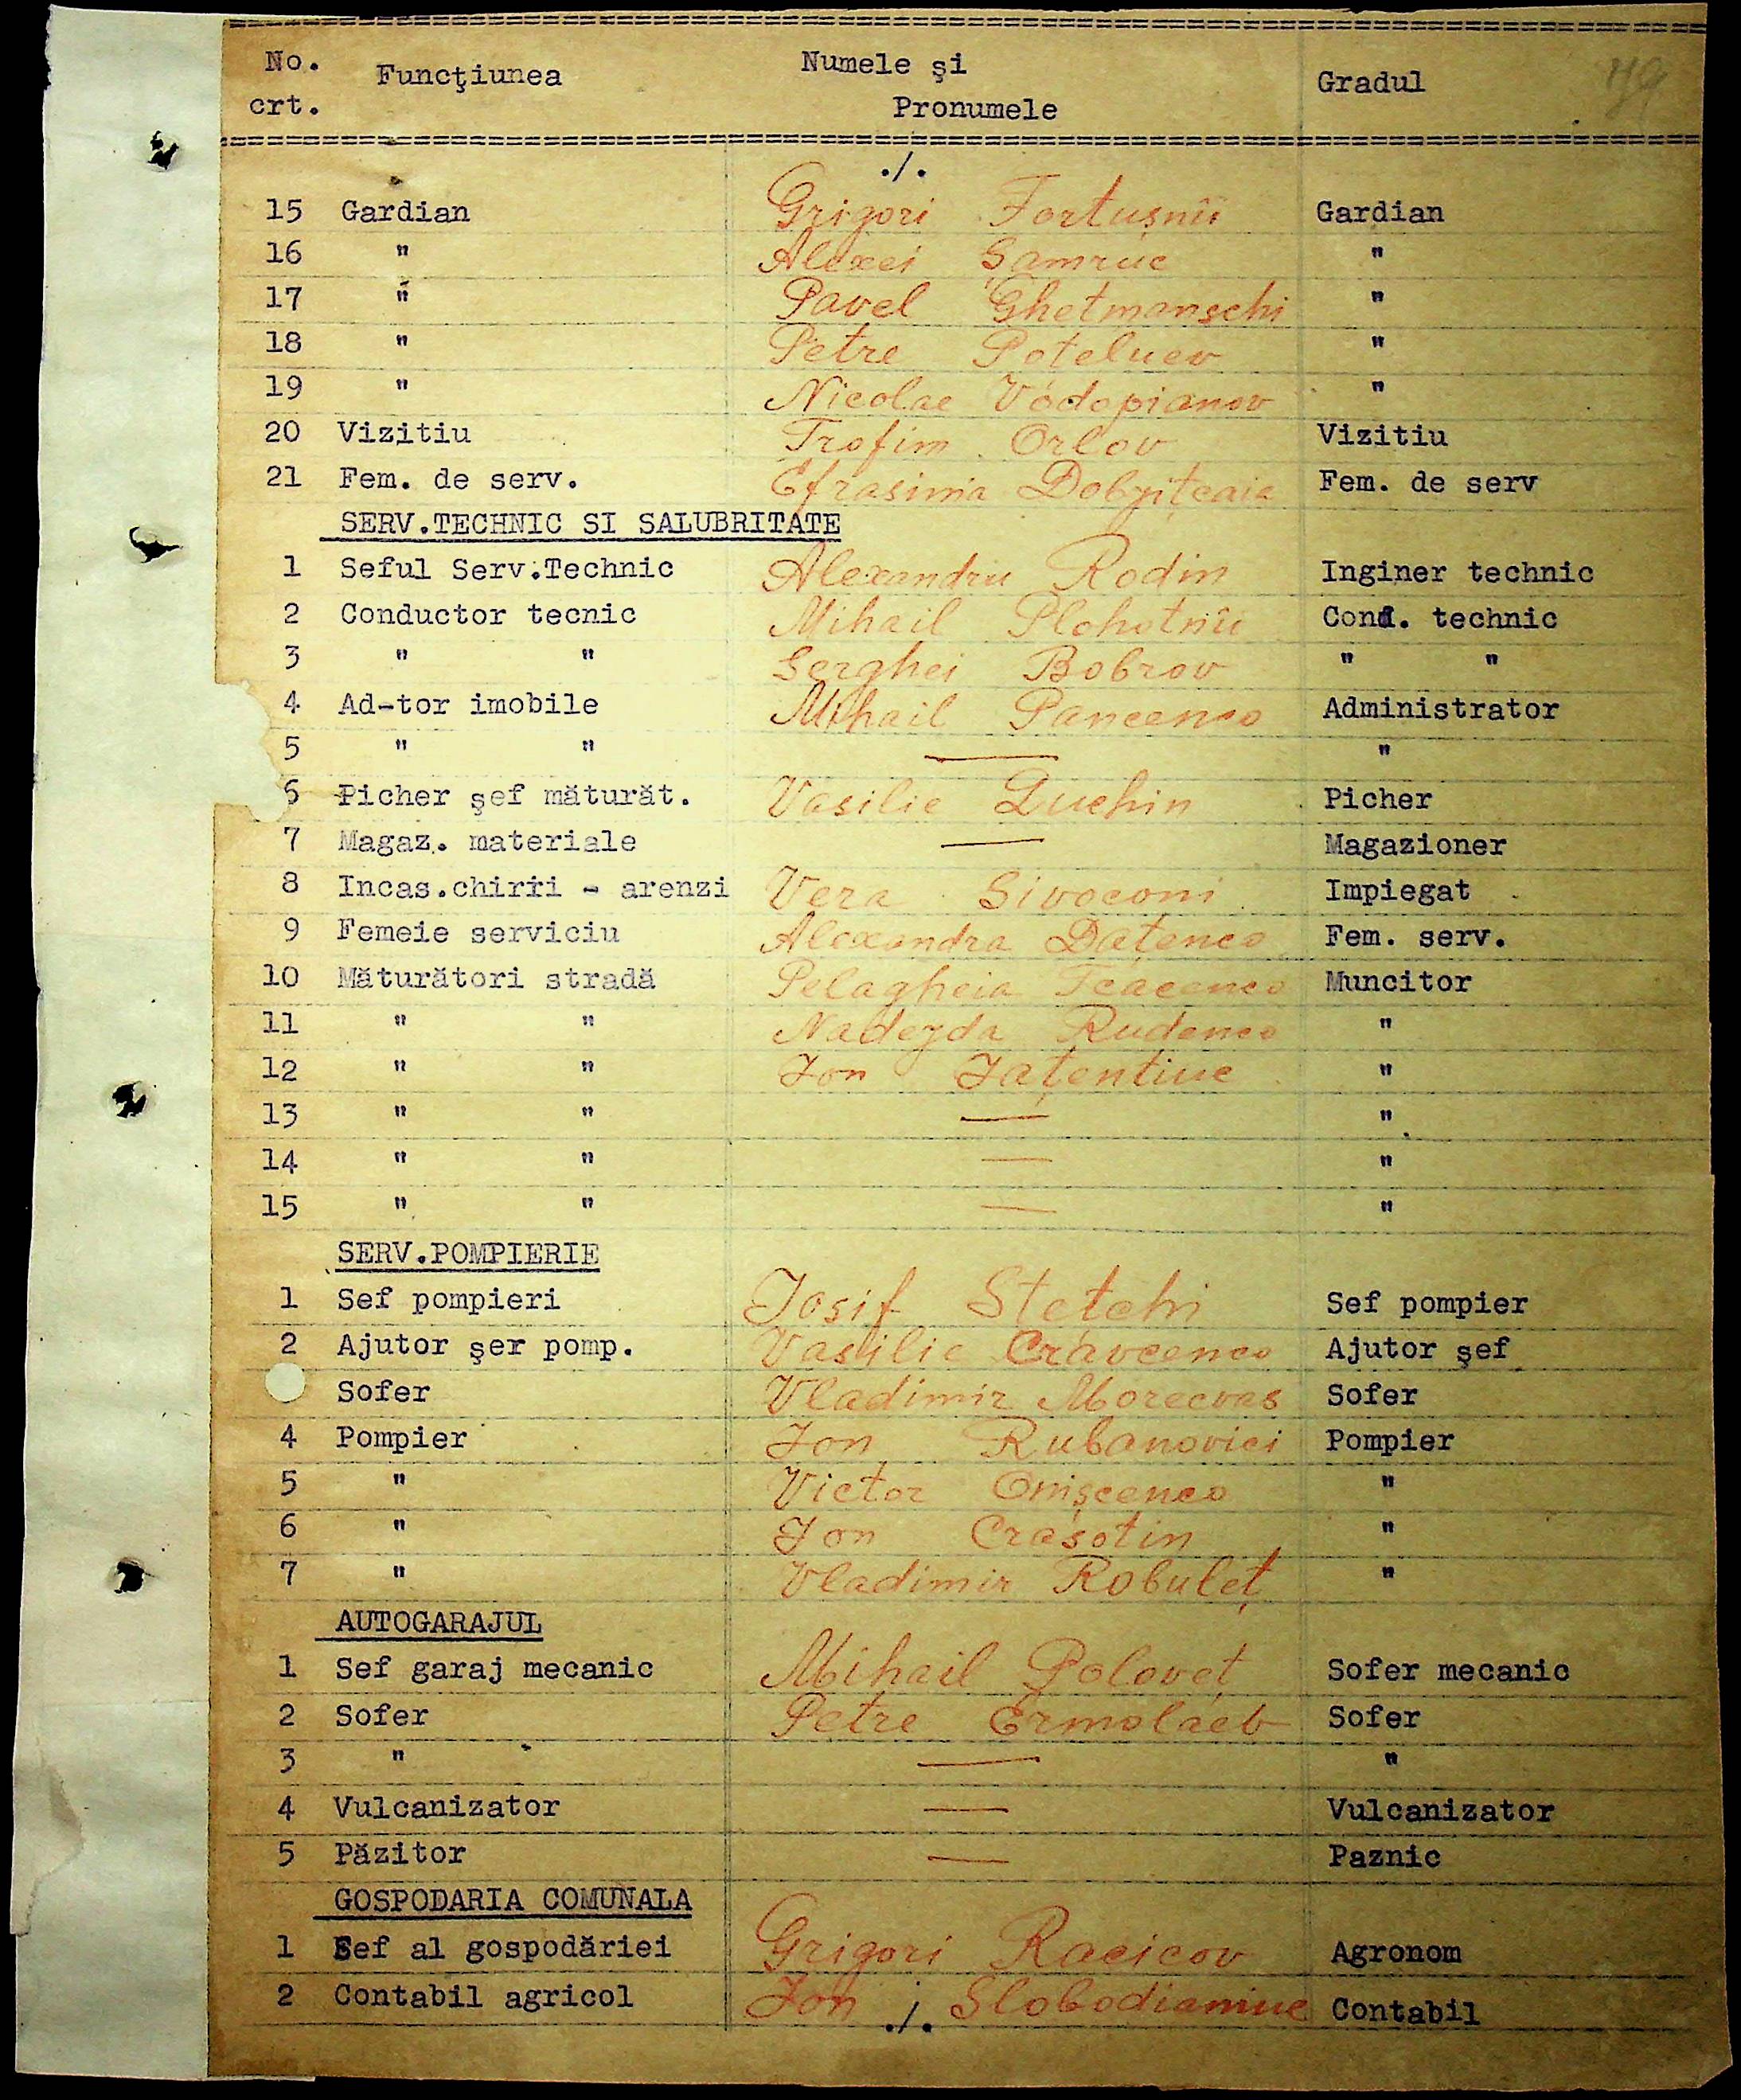 No. Funcţiunea Numele şi Gradul
crt. Pronumele
./.
15 Gardian Grigori Fortușnîi Gardian
16 " Alexei Samriuc "
17 " Pavel Ghetmanschi "
18 " Petre Poteluev "
19 " Nicolae Vodopianov "
20 Vizitiu Trofim Orlov Vizitiu
21 Fem. de serv. Efrasinia Fem. de serv
SERV.TECHNIC SI SALUBRITATE
1 Seful Serv.Technic Alexandru Rodin Inginer technic
2 Conductor tecnic Mihail Plohotnîi Cond. technic
3 " " Serghei Bobrov " "
4 Ad-tor imobile Mihail Pancenco Administrator
5 " " — "
6 Picher şef măturăt. Vasilie Luchin Picher
7 Magaz. materiale — Magazioner
8 Incas.chirii - arenzi Vera Sivoconi Impiegat
9 Femeie serviciu Alexandra Dațenco Fem. serv.
10 Măturători stradă Pelagheia Tcacenco Muncitor
11 " " Nadejda Rudenco "
12 " " Ion Iațentiuc "
13 " " — "
14 " " — "
15 " " — "
SERV.POMPIERIE
1 Sef pompieri Iosif Stețchi Sef pompier
2 Ajutor şer pomp. Vasilie Cravcenco Ajutor şef
Sofer Vladimir Morecvas Sofer
4 Pompier Ion Rubanovici Pompier
5 " Victor Onișcenco "
6 " Ion Crasotin "
7 " Vladimir Robuleț "
AUTOGARAJUL
1 Sef garaj mecanic Mihail Poloveț Sofer mecanic
2 Sofer Petre Ermolaev Sofer
3 " — "
4 Vulcanizator — Vulcanizator
5 Păzitor — Paznic
GOSPODARIA COMUNALA
1 Sef al gospodăriei Grigori Racicov Agronom
2 Contabil agricol Ion Slobodianiuc Contabil
./.